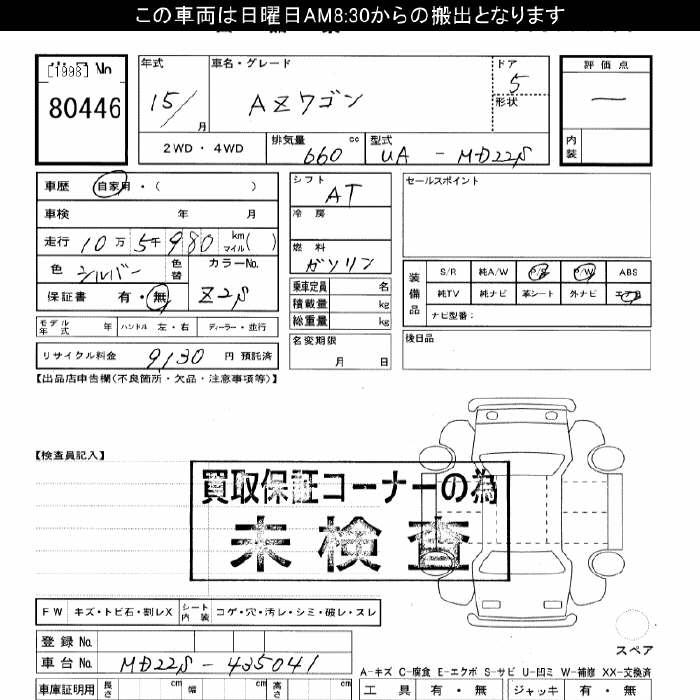 この車両は日曜日AM8:30からの搬出となります
[1998] No
80446
年式 車名・グレード ドア 評価点
15/ 月 AZワゴン 5 形状 —
2WD・4WD 排気量 660 cc 型式 UA - MD22S 内装
車歴 自家用・( )
車検 年 月
走行 10万 5千 980 km マイル( )
色 シルバー 色替 カラーNo.
保証書 有・無 Z2S
モデル年式 年 ハンドル 左・右 ディーラー・並行
リサイクル料金 9130 円 預託済
シフト AT
冷房
燃料 ガソリン
乗車定員 名
積載量 kg
総重量 kg
名変期限 月 日
セールスポイント
装備品 S/R 純A/W P/S P/W ABS
純TV 純ナビ 革シート 外ナビ エアB
ナビ型番:
後日品
【出品店申告欄(不良箇所・欠品・注意事項等)】
【検査員記入】
買取保証コーナーの為
未検査
FW キズ・トビ石・割レX シート内装 コゲ・穴・汚レ・シミ・破レ・スレ
スペア
登録No.
車台No. MD22S-435041
A-キズ C-腐食 E-エクボ S-サビ U-凹ミ W-補修 XX-交換済
車庫証明用 長さ cm 幅 cm 高さ cm 工具 有・無 ジャッキ 有・無